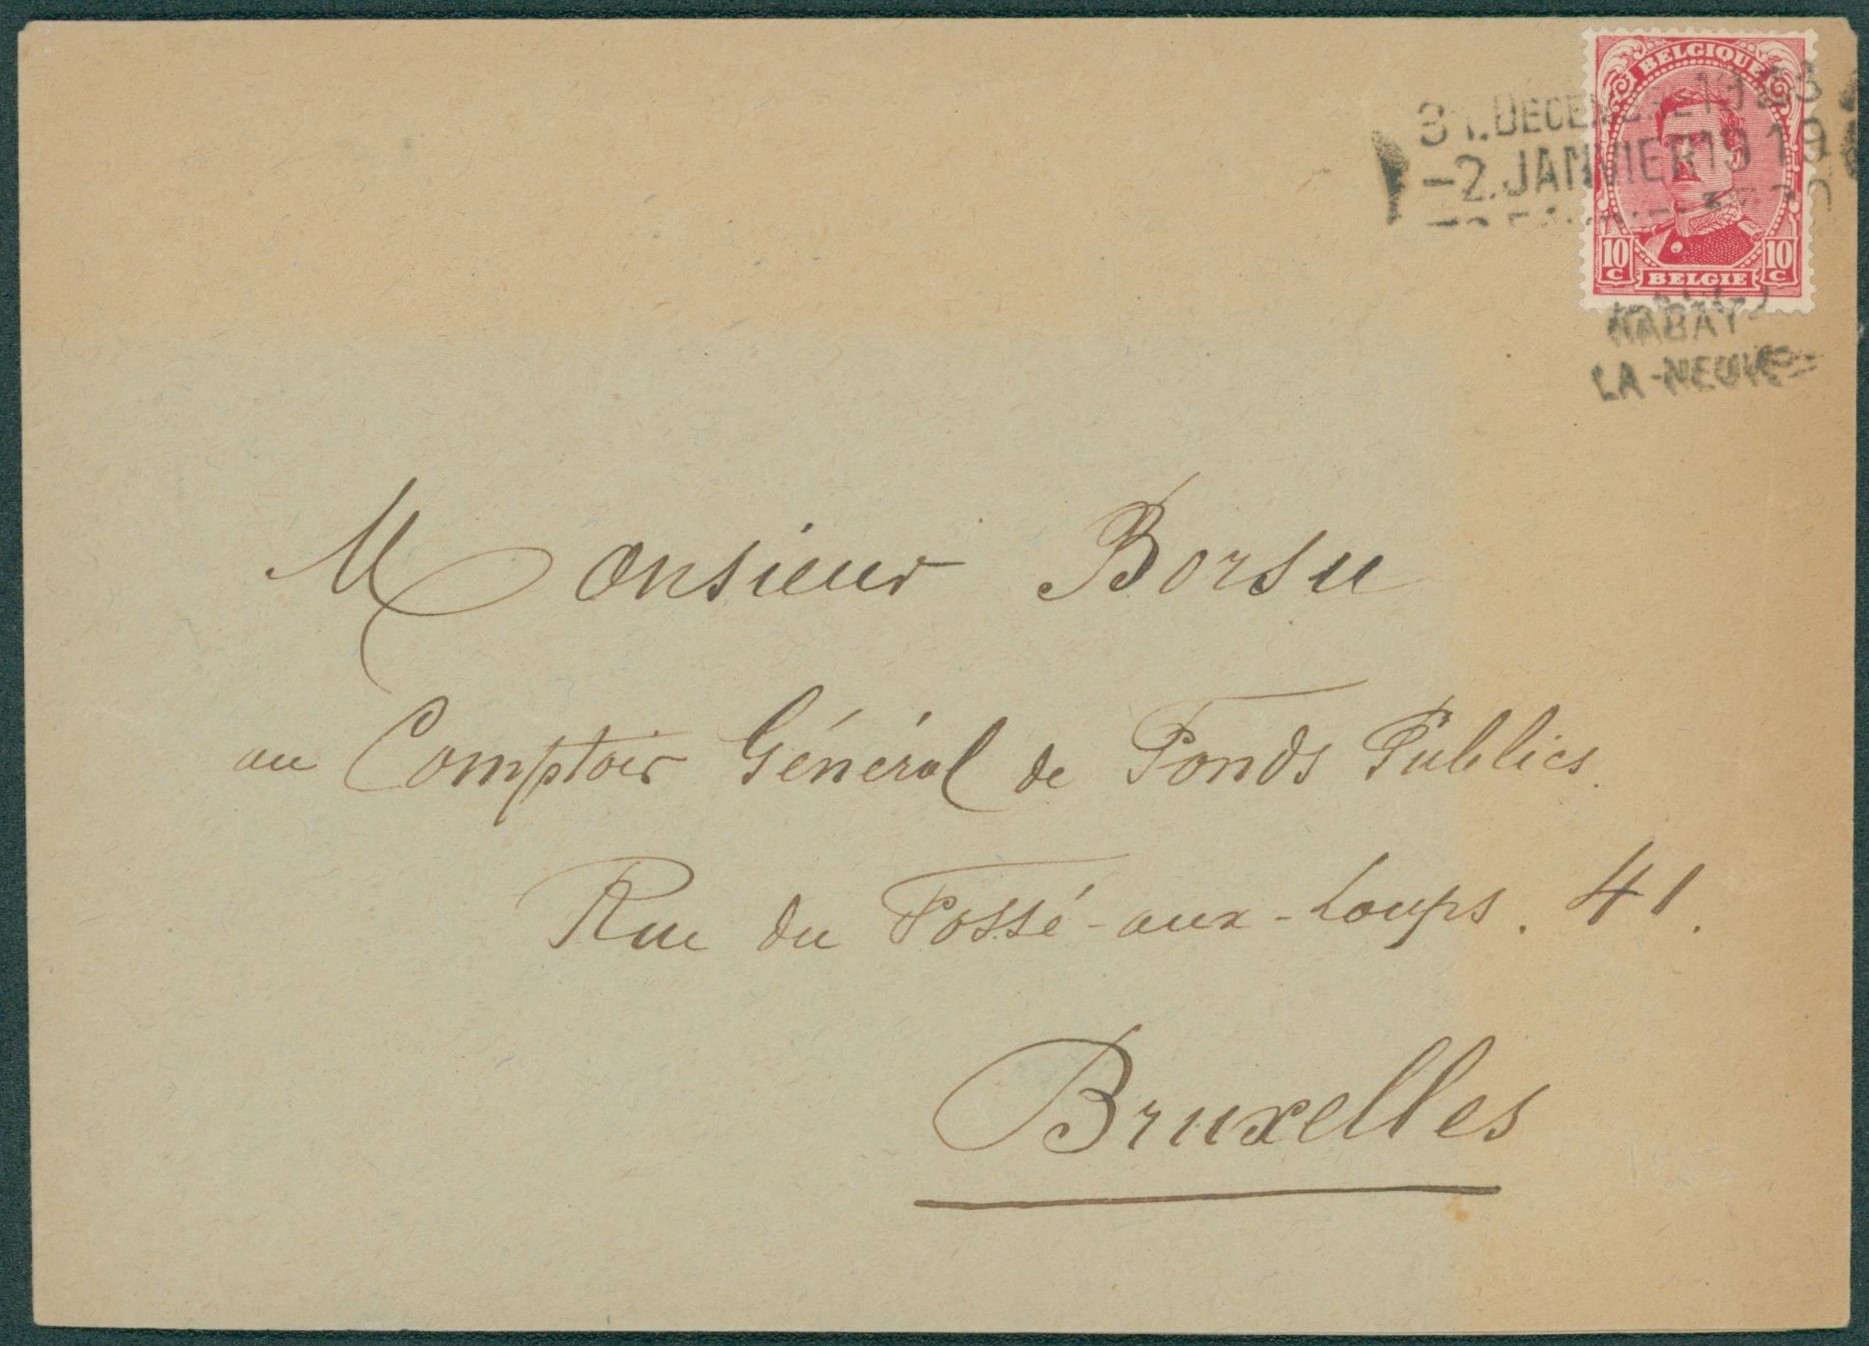 BELGIQUE
31.DECEMBRE 19
-2.JANVIER 1919
10 C
BELGIE
10 C
HABAY
LA-NEUVE
Monsieur Borsu
au Comptoir Général de Fonds Publics.
Rue du Fossé-aux-Loups. 41.
Bruxelles